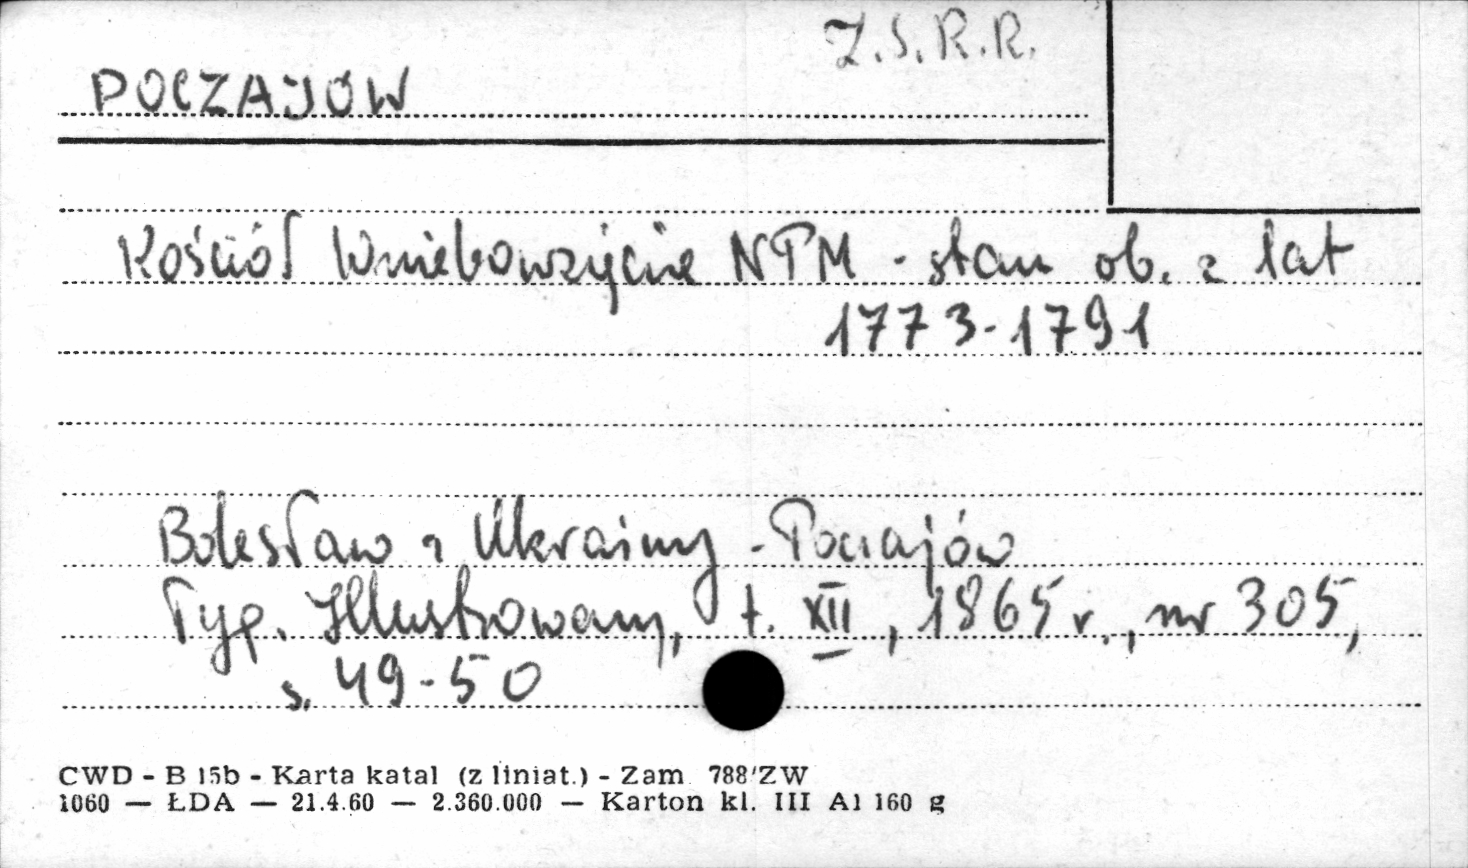 Z.S.R.R.
POCZAJÓW
Kościół Wniebowzięcie NPM - stan ob. z lat
1773-1791
Bolesław z Ukrainy - Poczajów
Tyg. Illustrowany, t. XII, 1865 r., nr 305,
s. 49-50
CWD - B 15b - Karta katal (z liniat.) - Zam 788/ZW
1060 — ŁDA — 21.4.60 — 2.360.000 — Karton kl. III A1 160 g